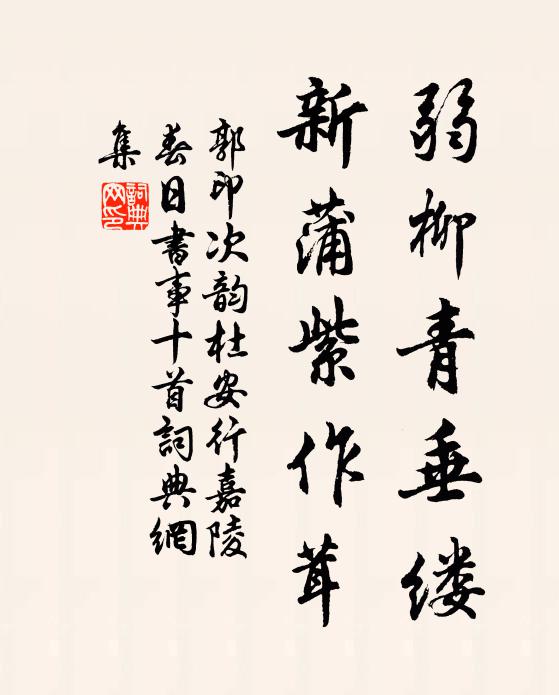 弱柳青垂缕
新蒲紫作茸
郭印次韵杜安行嘉陵
春日書事十首詞典網
集
詞典网印